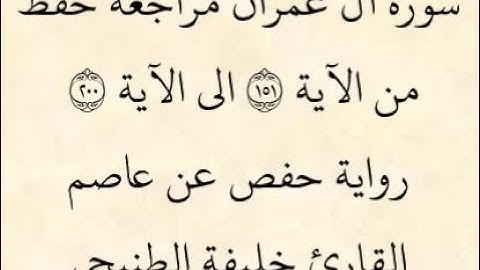 سورة آل عمران مراجعة حفظ
من الآية ١٥١ الى الآية ٢٠٠
رواية حفص عن عاصم
القارئ خليفة الطنيجي